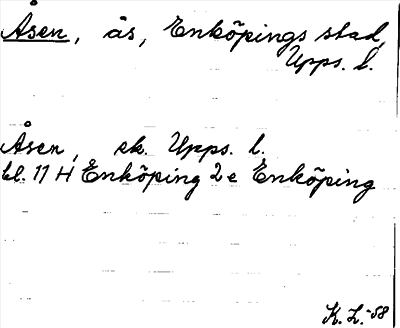 Åsen, ås, Enköpings stad,
Upps. l.
Åsen, ek. Upps. l.
bl. 11 H Enköping 2 e Enköping
K. L. -58